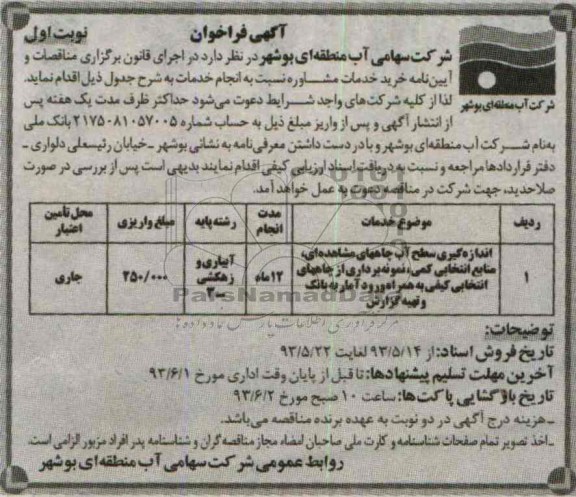 آگهی فراخوان
نوبت اول
شرکت سهامی آب منطقه‌ای بوشهر در نظر دارد در اجرای قانون برگزاری مناقصات و
آیین‌نامه خرید خدمات مشاوره نسبت به انجام خدمات به شرح جدول ذیل اقدام نماید.
لذا از کلیه شرکت‌های واجد شرایط دعوت می‌شود حداکثر ظرف مدت یک هفته پس
از انتشار آگهی و پس از واریز مبلغ ذیل به حساب شماره ۲۱۷۵۰۸۱۰۵۷۰۰۵ بانک ملی
شرکت آب منطقه‌ای بوشهر
به‌نام شرکت آب منطقه‌ای بوشهر و با در دست داشتن معرفی‌نامه به نشانی بوشهر ـ خیابان رئیسعلی دلواری ـ
دفتر قراردادها مراجعه و نسبت به دریافت اسناد ارزیابی کیفی اقدام نمایند بدیهی است پس از بررسی در صورت
صلاحدید، جهت شرکت در مناقصه دعوت به عمل خواهد آمد.
ردیف | موضوع خدمات | مدت انجام | رشته پایه | مبلغ واریزی | محل تأمین اعتبار
۱ | اندازه‌گیری سطح آب چاههای مشاهده‌ای، منابع انتخابی کمی، نمونه‌برداری از چاههای انتخابی کیفی به همراه ورود آمار به بانک و تهیه گزارش | ۱۲ماه | آبیاری و زهکشی ۳ـ | ۲۵۰/۰۰۰ | جاری
ParsNamadData
مرکز فرآوری اطلاعات پارس نماد داده ها
توضیحات:
تاریخ فروش اسناد: از ۹۳/۵/۱۴ لغایت ۹۳/۵/۲۲
آخرین مهلت تسلیم پیشنهادها: تا قبل از پایان وقت اداری مورخ ۹۳/۶/۱
تاریخ بازگشایی پاکت‌ها: ساعت ۱۰ صبح مورخ ۹۳/۶/۲
ـ هزینه درج آگهی در دو نوبت به عهده برنده مناقصه می‌باشد.
ـ اخذ تصویر تمام صفحات شناسنامه و کارت ملی صاحبان امضاء مجاز مناقصه‌گران و شناسنامه پدر افراد مزبور الزامی است.
روابط عمومی شرکت سهامی آب منطقه‌ای بوشهر